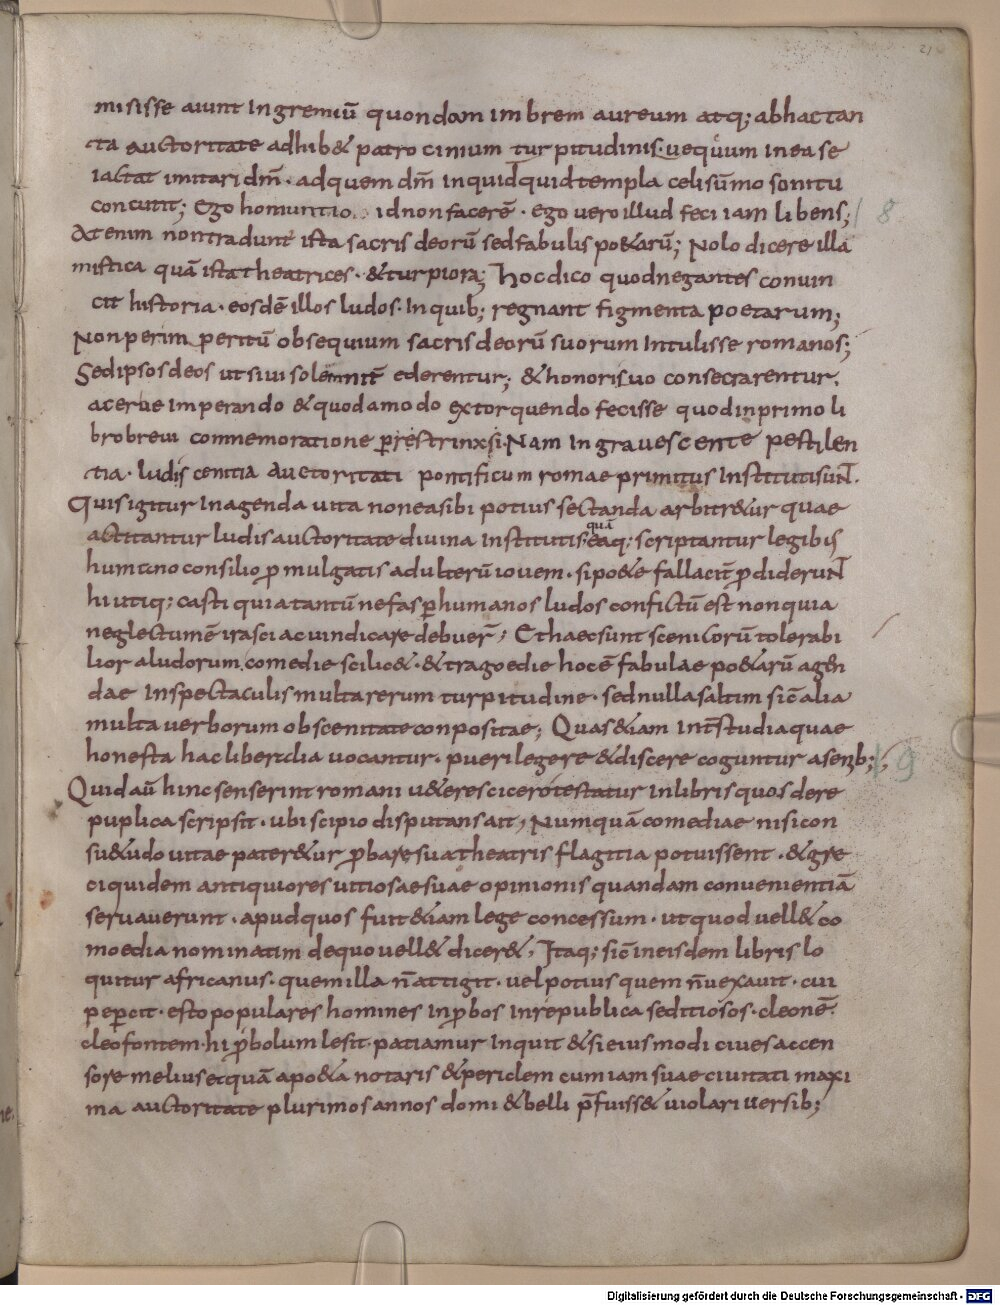 21
misisse aiunt in gremiū quondam imbrem aureum atq; ab hac tan
ta auctoritate adhib& patrocinium turpitudinis. uequium in ea se
iactat imitari dm̄. ad quem dm̄ inquid quid templa celi sūmo sonitu
concutit; Ego homuntio id non facerē. ego uero illud feci iam libens; 8
At enim non tradunt ista sacris deorū sed fabulis po&arū; Nolo dicere illa
mistica quā ista theatrices. & turpiora; Hoc dico quod negantes conuin
cit historia. eosdē illos ludos. In quib; regnant figmenta poetarum;
Non per im peritū obsequium sacris deorū suorum intulisse romanos;
Sed ipsos deos ut siui solemnit̄ ederentur; & honori suo consecrarentur.
acerue imperando & quodamodo extorquendo fecisse quod in primo li
bro breui commemoratione perstrinxsi. Nam ingrauescente pestilen
tia. ludi scenitia auctoritati pontificum romae primitus institutisuNT.
Quis igitur in agenda uita non ea sibi potius sectanda arbitr&ur quae
actitantur ludis auctoritate diuina institutis.
quā
eaq; scriptantur legibis
humano consilio promulgatis adulterū iouem. si po&e fallacit̄ prodideruNT
hi utiq; casti quia tantū nefas per humanos ludos confictū est non quia
neglectum ē irasci ac uindicare debuer̄; Et haec sunt scenicorū tolerabi
lior a ludorum. comedie scilic& . & tragoedie hoc ē fabulae po&arū agen
dae in spectaculis multa rerum turpitudine. sed nulla saltim sic̄ alia
multa uerborum obscenitate conpositae; Quas &iam int̄ studia quae
honesta hac liberalia uocantur. pueri legere & discere coguntur a senib; 9
Quid aū hinc senserint romani u&eres cicero testatur in libris quos de re
puplica scripsit. ubi scipio disputans ait; Numquā comediae nisi con
su&udo uitae pater&ur probare sua theatris flagitia potuissent. & gre
ci quidem antiquiores uitiosae suae opinionis quandam conuenientiā
seruauerunt. apud quos fuit &iam lege concessum. ut quod uell& co
moedia nominatim de quo uell& dicer&; Itaq; sic̄ in eisdem libris lo
quitur africanus. quem illa n̄ attigit. uel potius quem n̄ uexauit. cui
pepercit. esto populares homines inprobos in republica seditiosos. cleonē.
cleofontem. hi p̄bolum lesit. patiamur inquit & si eiusmodi ciues accen
sore melius ē quā a po&a notaris & periclem cum iam suae ciuitati maxi
ma auctoritate plurimos annos domi & belli p̄fuiss& uiolari uersib;
Digitalisierung gefördert durch die Deutsche Forschungsgemeinschaft - DFG